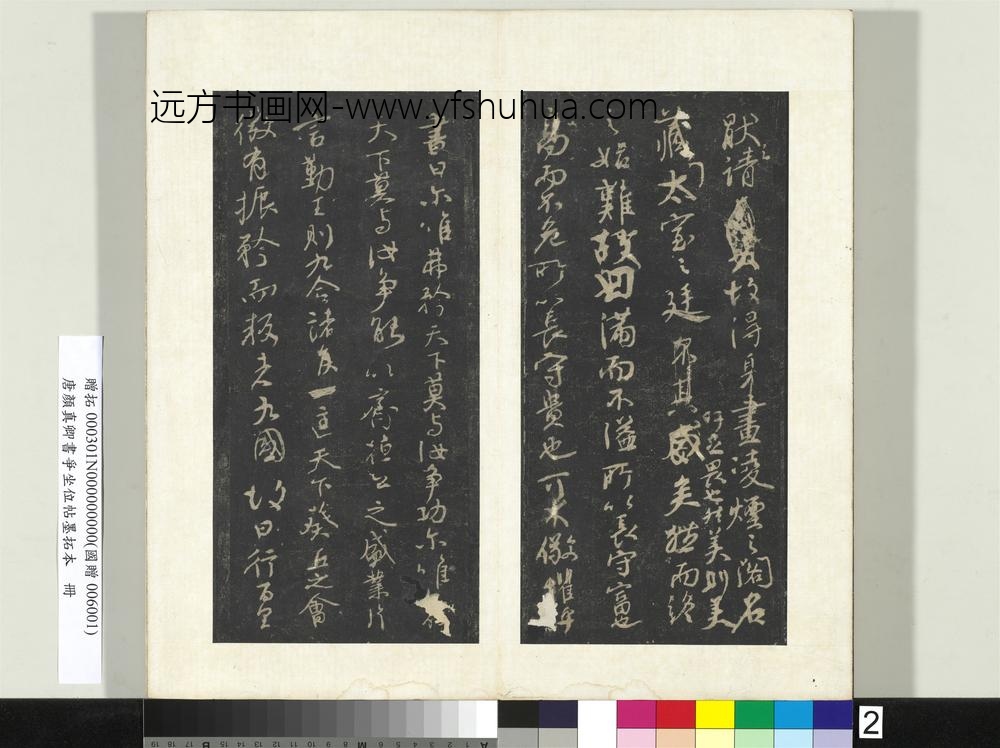 远方书画网-www.yfshuhua.com
厭之請故得身畫凌煙之閣名
藏太室之廷
吁足畏也然美則美
矣然而終
之始難故曰滿而不溢所以長守富也
高而不危所以長守貴也可不儆懼乎
書曰爾唯弗矜天下莫與汝爭功爾唯
天下莫與汝爭能以齊桓公之盛業片
言勤王則九合諸侯一匡天下葵丘之會
微有振矜而叛者九國故曰行百里
贈拓 000301N000000000(國贈 006001)
唐顏真卿書爭坐位帖墨拓本 冊
2